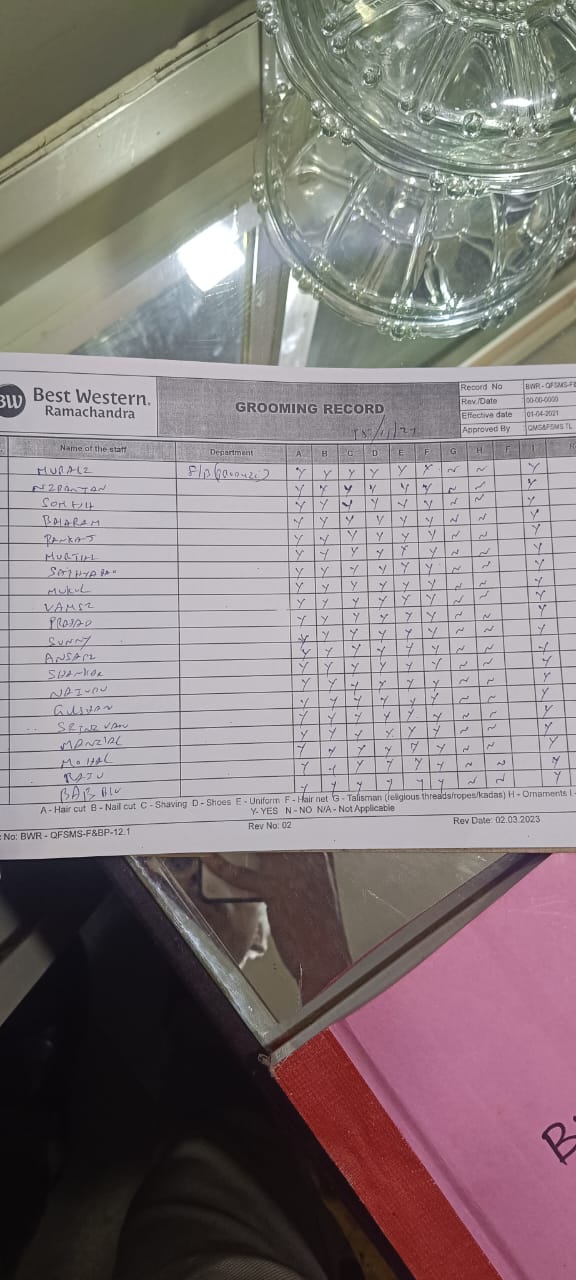 BW Best Western.
Ramachandra
GROOMING RECORD
Record No BWR - QFSMS-F&
Rev./Date 00-00-0000
Effective date 01-04-2021
Approved By QMS&FSMS TL
Name of the staff Department A B C D E F G H F I
MURALI F/B Y Y Y Y Y Y N N Y
NIRANJAN Y Y Y Y Y Y N N Y
Y Y Y Y Y Y N N Y
BALARAM Y Y Y Y Y Y N N Y
PANKAJ Y Y Y Y Y Y N N Y
Y Y Y Y Y Y N N Y
Y Y Y Y Y Y N N Y
MUKUL Y Y Y Y Y Y N N Y
VAMSI Y Y Y Y Y Y N N Y
PRASAD Y Y Y Y Y Y N N Y
SUNNY Y Y Y Y Y Y N N Y
ANSARI Y Y Y Y Y Y N N Y
SHANKAR Y Y Y Y Y Y N N Y
NAIDU Y Y Y Y Y Y N N Y
GULSHAN Y Y Y Y Y Y N N Y
Y Y Y Y Y Y N N Y
Y Y Y Y Y Y N N Y
Y Y Y Y Y Y N N Y
RAJU Y Y Y Y Y Y N N Y
Y Y Y Y Y Y N N Y
A - Hair cut B - Nail cut C - Shaving D - Shoes E - Uniform F - Hair net G - Talisman (religious threads/ropes/kadas) H - Ornaments I -
Y- YES N - NO N/A - Not Applicable
No: BWR - QFSMS-F&BP-12.1 Rev No: 02 Rev Date: 02.03.2023
B